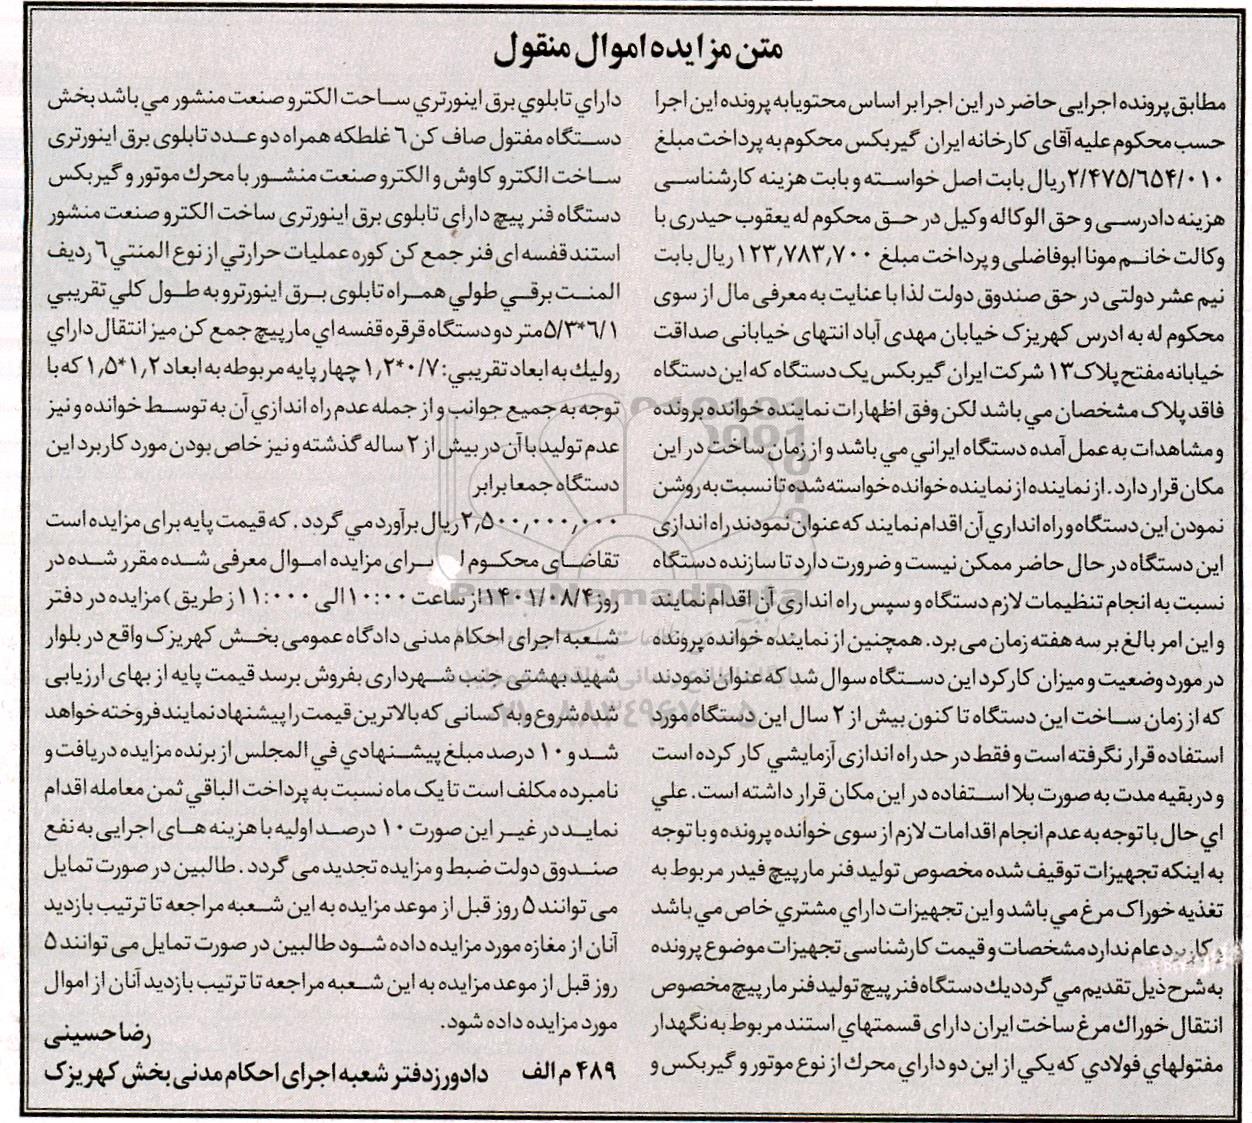 متن مزایده اموال منقول
مطابق پرونده اجرایی حاضر در این اجرا بر اساس محتویا به پرونده این اجرا
حسب محکوم علیه آقای کارخانه ایران گیربکس محکوم به پرداخت مبلغ
۲/۴۷۵/۶۵۴/۰۱۰ ریال بابت اصل خواسته و بابت هزینه کارشناسی
هزینه دادرسی و حق الوکاله وکیل در حق محکوم له یعقوب حیدری با
وکالت خانم مونا ابوفاضلی و پرداخت مبلغ ۱۲۳,۷۸۳,۷۰۰ ریال بابت
نیم عشر دولتی در حق صندوق دولت لذا با عنایت به معرفی مال از سوی
محکوم له به ادرس کهریزک خیابان مهدی آباد انتهای خیابانی صداقت
خیابانه مفتح پلاک ۱۳ شرکت ایران گیربکس یک دستگاه که این دستگاه
فاقد پلاک مشخصان می باشد لکن وفق اظهارات نماینده خوانده پرونده
و مشاهدات به عمل آمده دستگاه ایراني مي باشد و از زمان ساخت در این
مکان قرار دارد . از نماینده از نماینده خوانده خواسته شده تا نسبت به روشن
نمودن این دستگاه و راه انداري آن اقدام نمایند که عنوان نمودند راه اندازی
این دستگاه در حال حاضر ممکن نیست و ضرورت دارد تا سازنده دستگاه
نسبت به انجام تنظیمات لازم دستگاه و سپس راه اندازی آن اقدام نمایند
و این امر بالغ بر سه هفته زمان می برد . همچنین از نماینده خوانده پرونده
در مورد وضعیت و میزان کارکرد این دستگاه سوال شد که عنوان نمودند
که از زمان ساخت این دستگاه تا کنون بیش از ۲ سال این دستگاه مورد
استفاده قرار نگرفته است و فقط در حد راه اندازی آزمایشي کار کرده است
و در بقیه مدت به صورت بلا استفاده در این مکان قرار داشته است . علي
اي حال با توجه به عدم انجام اقدامات لازم از سوی خوانده پرونده و با توجه
به اینکه تجهیزات توقیف شده مخصوص تولید فنر مارپیچ فیدر مربوط به
تغذیه خوراک مرغ مي باشد و این تجهیزات داراي مشتري خاص مي باشد
و کاربرد عام ندارد مشخصات و قیمت کارشناسی تجهیزات موضوع پرونده
به شرح ذیل تقدیم مي گردد یك دستگاه فنر پیچ تولید فنر مارپیچ مخصوص
انتقال خوراك مرغ ساخت ایران دارای قسمتهاي استند مربوط به نگهدار
مفتولهاي فولادي که یکي از این دو داراي محرك از نوع موتور و گیربکس و
داراي تابلوي برق اینورتري ساحت الکترو صنعت منشور مي باشد بخش
دستگاه مفتول صاف کن ۶ غلطکه همراه دو عدد تابلوی برق اینورتری
ساخت الکترو کاوش و الکترو صنعت منشور با محرك موتور و گیربکس
دستگاه فنر پیچ داراي تابلوی برق اینورتری ساخت الکترو صنعت منشور
استند قفسه ای فنر جمع کن کوره عملیات حرارتي از نوع المنتي ۶ ردیف
المنت برقي طولي همراه تابلوی برق اینورترو به طول کلي تقریبي
۵/۳*۶/۱ متر دو دستگاه قرقره قفسه اي مارپیچ جمع کن میز انتقال داراي
رولیك به ابعاد تقریبي: ۰/۷*۱,۲ چهار پایه مربوطه به ابعاد ۱,۲*۱,۵ که با
توجه به جمیع جوانب و از جمله عدم راه اندازي آن به توسط خوانده و نیز
عدم تولید با آن در بیش از ۲ ساله گذشته و نیز خاص بودن مورد کاربرد این
دستگاه جمعا برابر
۲,۵۰۰,۰۰۰,۰۰۰ ریال برآورد مي گردد . که قیمت پایه برای مزایده است
تقاضای محکوم برای مزایده اموال معرفی شده مقرر شده در
روز ۱۴۰۱/۰۸/۴ از ساعت ۱۰:۰۰ الی ۱۱:۰۰۰ ز طریق ) مزایده در دفتر
شعبه اجرای احکام مدنی دادگاه عمومی بخش کهریزک واقع در بلوار
شهید بهشتی جنب شهرداری بفروش برسد قیمت پایه از بهای ارزیابی
شده شروع و به کسانی که بالاترین قیمت را پیشنهاد نمایند فروخته خواهد
شد و ۱۰ درصد مبلغ پیشنهادي في المجلس از برنده مزایده دریافت و
نامبرده مکلف است تا یک ماه نسبت به پرداخت الباقي ثمن معامله اقدام
نماید در غیر این صورت ۱۰ درصد اولیه با هزینه های اجرایی به نفع
صندوق دولت ضبط و مزایده تجدید می گردد . طالبین در صورت تمایل
می توانند ۵ روز قبل از موعد مزایده به این شعبه مراجعه تا ترتیب بازدید
آنان از مغازه مورد مزایده داده شود طالبین در صورت تمایل می توانند ۵
روز قبل از موعد مزایده به این شعبه مراجعه تا ترتیب بازدید آنان از اموال
مورد مزایده داده شود.
رضا حسینی
۴۸۹ م الف دادورز دفتر شعبه اجرای احکام مدنی بخش کهریزک
ParsNamadData